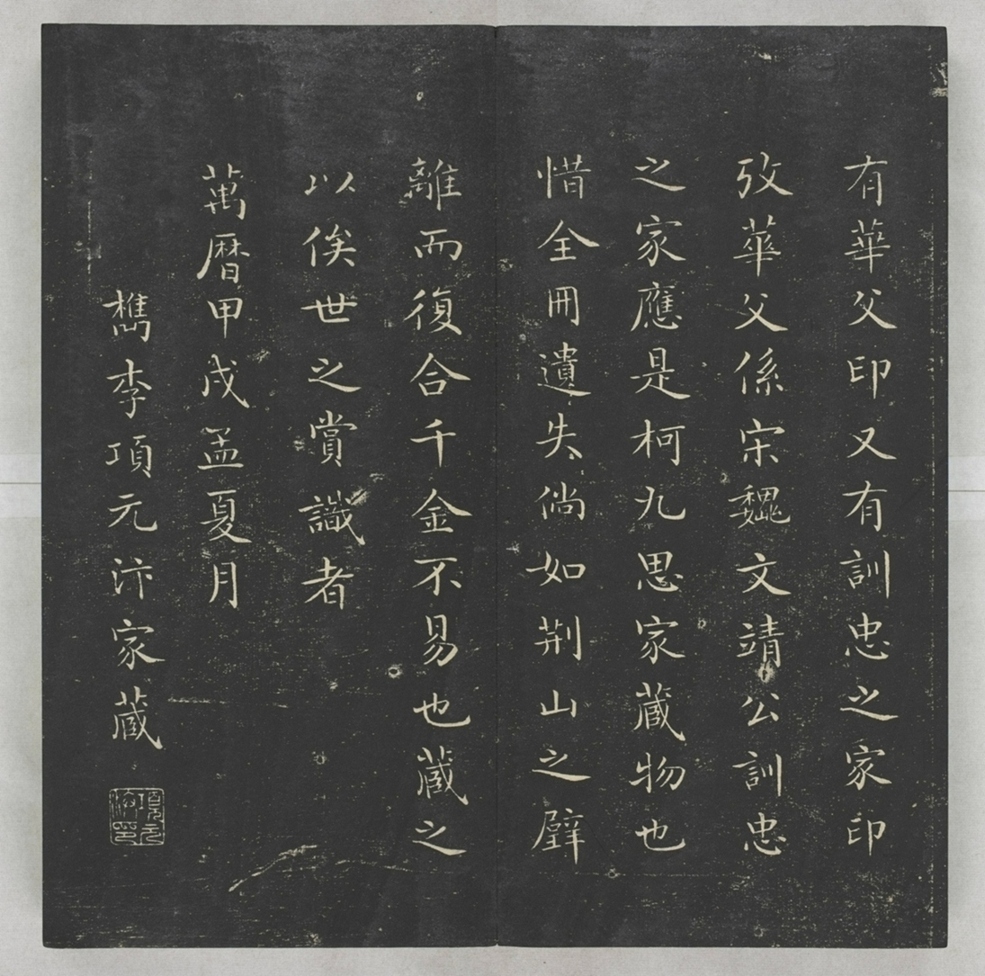 有華父印又有訓忠之家印
攷華父係宋魏文靖公訓忠
之家應是柯九思家藏物也
惜全冊遺失倘如荆山之璧
離而復合千金不易也藏之
以俟世之賞識者
萬曆甲戌孟夏月
檇李項元汴家藏
項元汴印